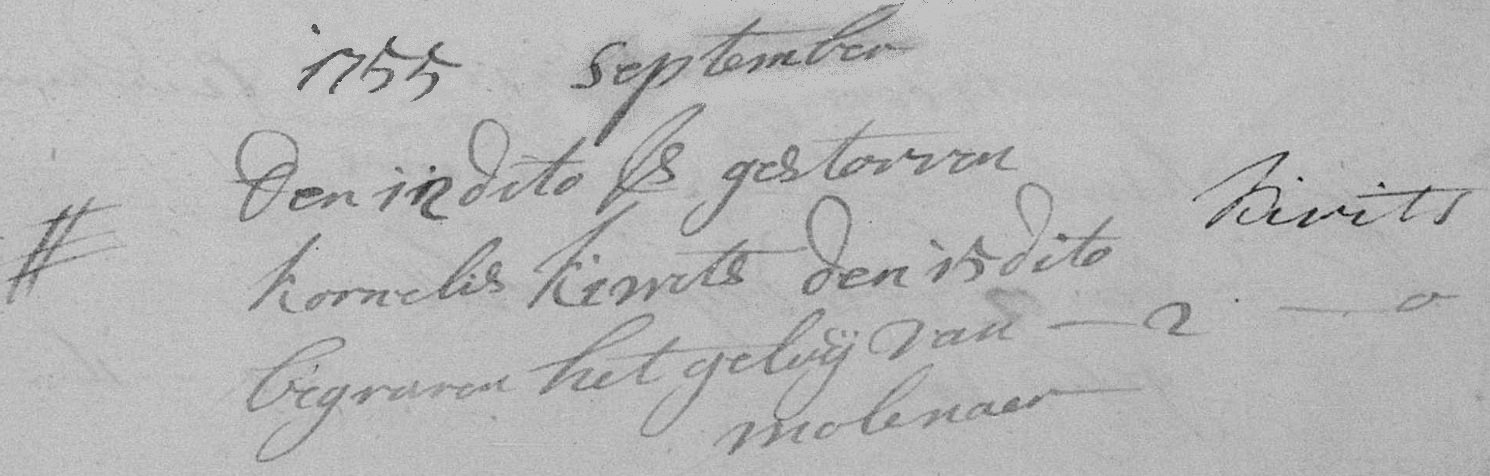 1755 September
Den 12 dito Is gestorven
kornelis kievits den 15 dito kivits
begraven het geluij van — 2 — 0
molenaer